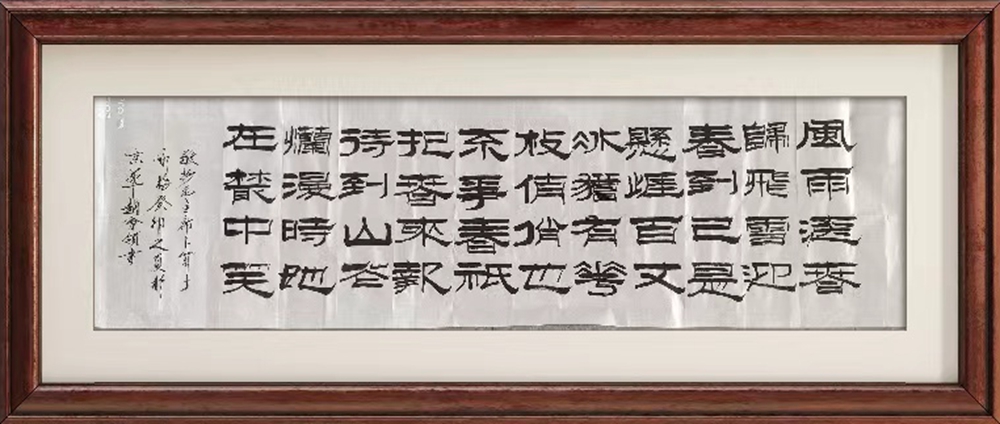 風雨送春
歸飛雪迎
春到已是
懸崖百丈
冰猶有花
枝俏俏也
不爭春祇
把春來報
待到山花
爛漫時她
在叢中笑
敬抄毛主席卜算子
咏梅癸卯之夏於
京
書